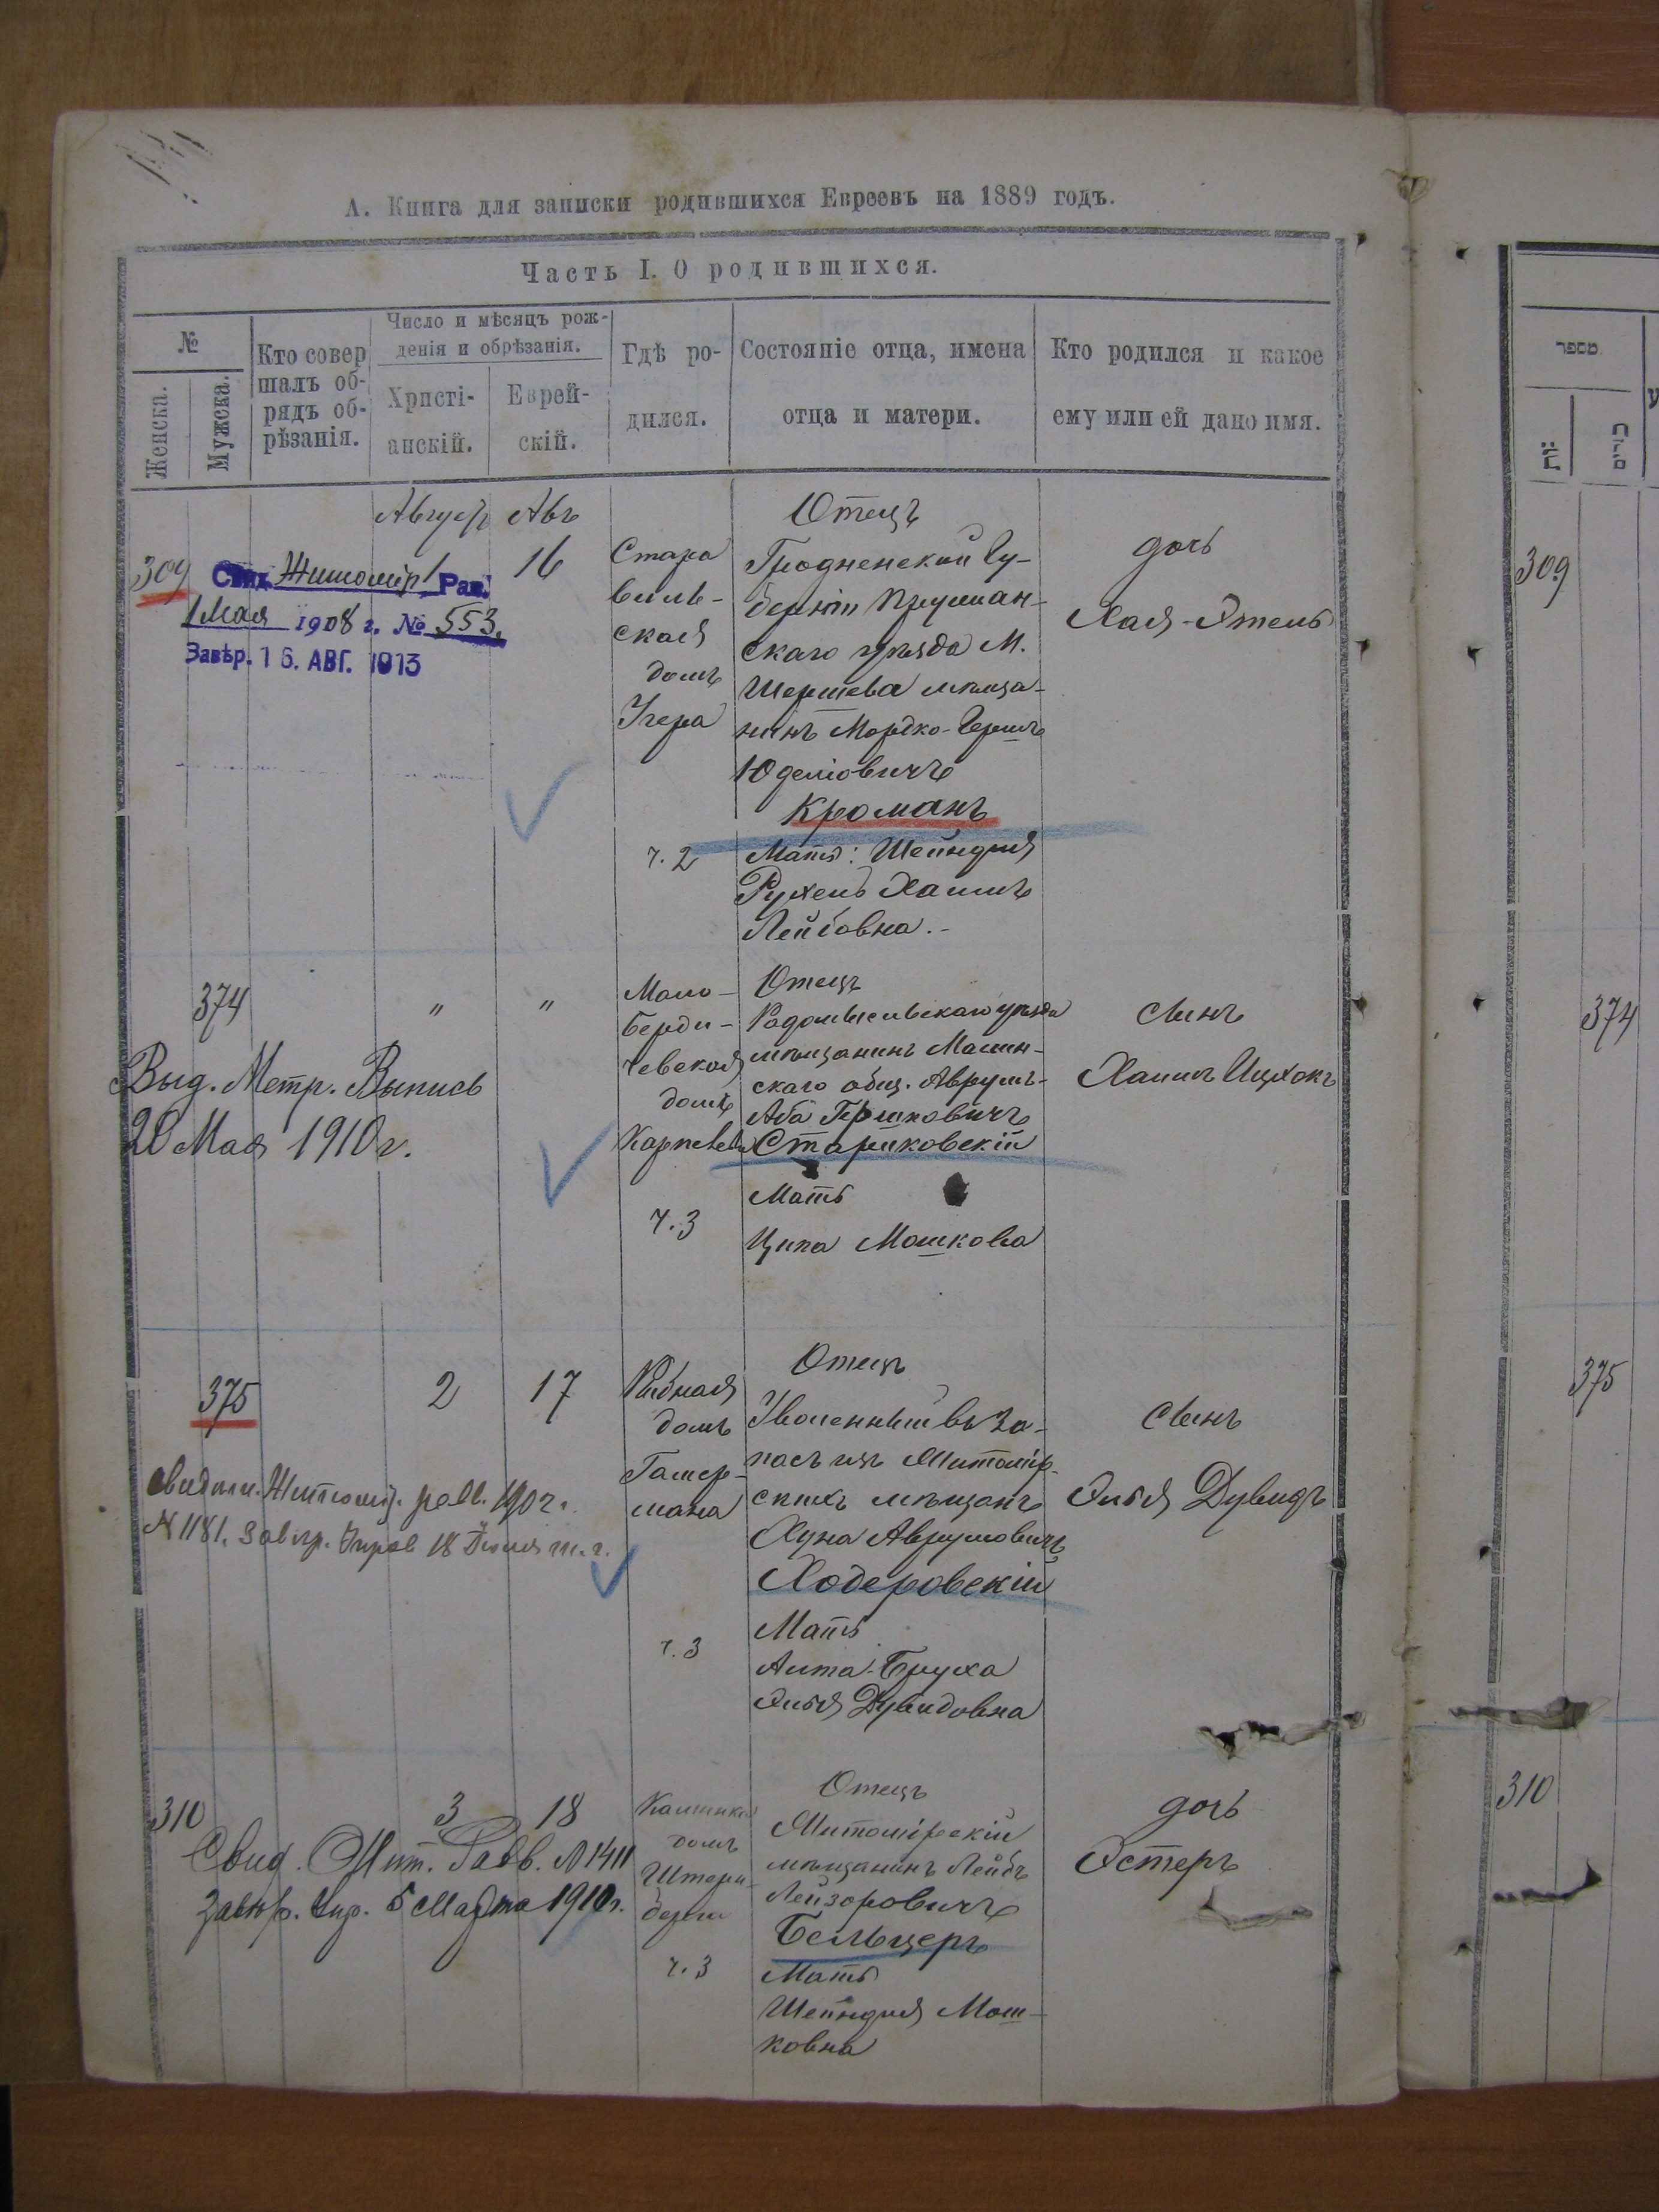 А. Книга для записки родившихся Евреевъ на 1889 годъ.
Часть I. О родившихся.
№
Женска.
Мужска.
Кто совер
шалъ об-
рядъ об-
рѣзанія.
Число и мѣсяцъ рож-
денія и обрѣзанія.
Христі-
анскій.
Еврей-
скій.
Гдѣ ро-
дился.
Состояніе отца, имена
отца и матери.
Кто родился и какое
ему или ей дано имя.
Август Авъ
309
1
16
Свид. Житомір. Рав.
1 Мая 1908 г. № 553.
Завѣр. 16. АВГ. 1913
Старо
вильс-
ская
домъ
Угера
ч. 2
Отецъ
Гродненской Гу-
берніи Пружан-
скаго уѣзда М.
Шершева мѣща-
нинъ Мордко-Гершъ
Юделіовичъ
Кроманъ
Мать: Шейндля
Рухель Хаимъ
Лейбовна.-
дочь
Хая-Этель
374
"
"
Выд. Метр. Выпись
20 Мая 1910 г.
Мало-
Берди-
чевская
домъ
ч. 3
Отецъ
Радомысльскаго уѣзда
мѣщанинъ Малин-
скаго общ. Аврумъ-
Аба Гершковичъ
Стариковскій
Мать
Ципа Мошкова
сынъ
Хаимъ Ицхокъ
375
2
17
Свидѣт. Житомір. равв. 190 г.
№ 1181. Завѣр. Управ 18 Іюля т. г.
Рыбная
домъ
Гамер-
мана
ч. 3
Отецъ
Уволенный въ за-
пасъ изъ Житомір-
скихъ мѣщанъ
Хуна Аврумовичъ
Ходеровскій
Мать
Аита-Бруха
Элья Дувидовна
сынъ
Элья Дувидъ
310
3
18
Свид. Жит. Равв. № 1411
завѣр. Упр. 5 Марта 1910 г.
домъ
Штерн-
берга
ч. 3
Отецъ
Житомірскій
мѣщанинъ Лейбъ
Лейзоровичъ
Бельцеръ
Мать
Шейндля Мош-
ковна
дочь
Эстеръ
מספר
309
374
375
310